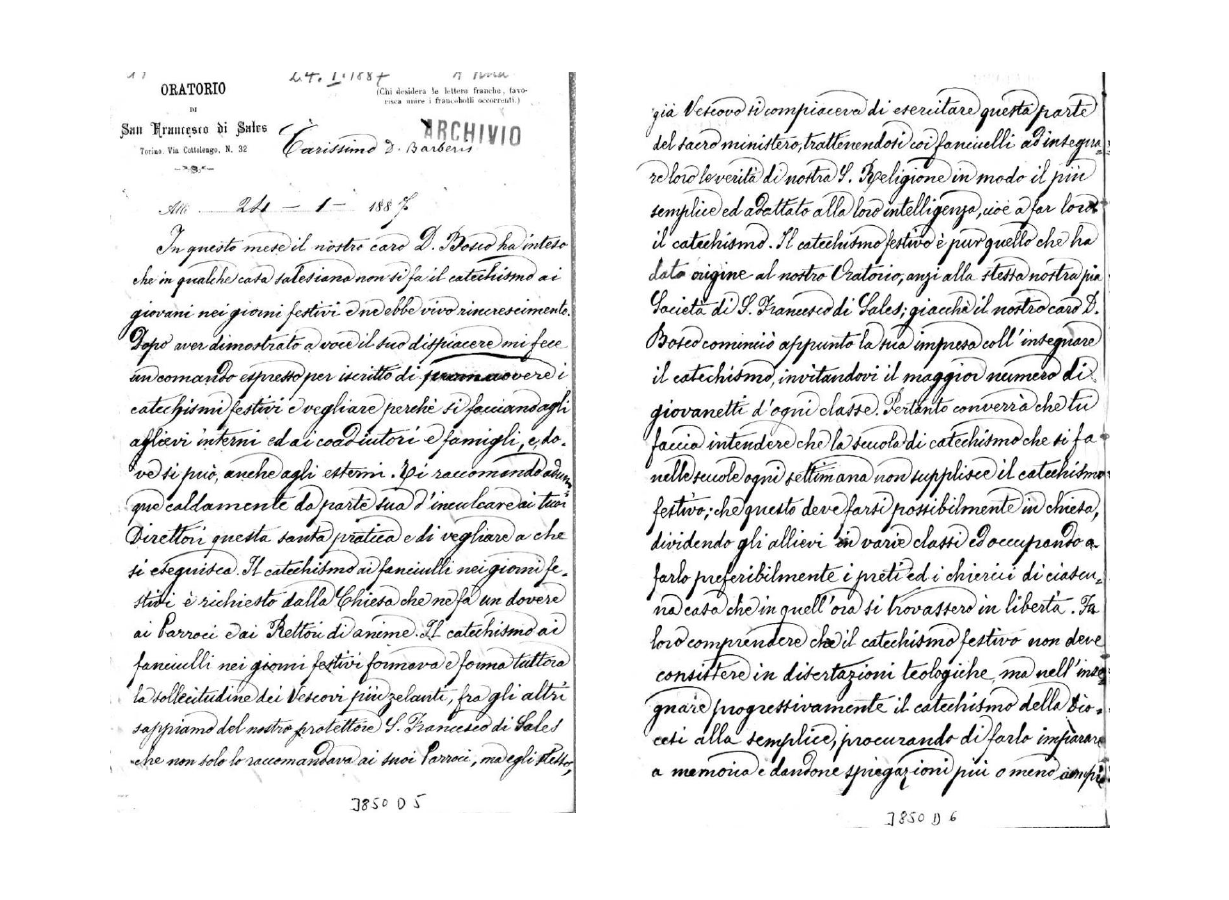 24. I. 1887
ORATORIO
DI
San Francesco di Sales
Torino, Via Cottolengo, N. 32
(Chi desidera le lettere franche, favo-
risca unire i francobolli occorrenti.)
ARCHIVIO
Carissimo D. Barberis
Alli 24 – 1 – 1887
In questo mese il nostro caro D. Bosco ha inteso
che in qualche casa salesiana non si fa il catechismo ai
giovani nei giorni festivi e ne ebbe vivo rincrescimento.
Dopo aver dimostrato a voce il suo dispiacere mi fece
un comando espresso per iscritto di promuovere i
catechismi festivi e vegliare perchè si facciano agli
aglievi interni ed ai coadiutori e famigli, e, do-
ve si può, anche agli esterni. Vi raccomando adun-
que caldamente da parte sua d'inculcare ai tuoi
Direttori questa santa pratica e di vegliare a che
si eseguisca. Il catechismo ai fanciulli nei giorni fe-
stivi è richiesto dalla Chiesa che ne fa un dovere
ai Parroci e ai Rettori di anime. Il catechismo ai
fanciulli nei giorni festivi formava e forma tuttora
la sollecitudine dei Vescovi più zelanti, fra gli altri
sappiamo del nostro protettore S. Francesco di Sales
che non solo lo raccomandava ai suoi Parroci, ma egli stesso,
J850 D 5
già Vescovo si compiaceva di esercitare questa parte
del sacro ministero, trattenendosi coi fanciulli ad insegna-
re loro le verità di nostra S. Religione in modo il più
semplice ed adattato alla loro intelligenza, cioè a far loro
il catechismo. Il catechismo festivo è pur quello che ha
dato origine al nostro Oratorio, anzi alla stessa nostra pia
Società di S. Francesco di Sales; giacchè il nostro caro D.
Bosco cominciò appunto la sua impresa coll'insegnare
il catechismo, invitandovi il maggior numero di
giovanetti d'ogni classe. Pertanto converrà che tu
faccia intendere che la scuola di catechismo che si fa
nelle scuole ogni settimana non supplisce il catechismo
festivo; che questo deve farsi possibilmente in chiesa,
dividendo gli allievi in varie classi ed occupando a
farlo preferibilmente i preti ed i chierici di ciascu-
na casa che in quell'ora si trovassero in libertà. Fa
loro comprendere che il catechismo festivo non deve
consistere in disertazioni teologiche, ma nell'inse-
gnare progressivamente il catechismo della Dio-
cesi alla semplice, procurando di farlo imparare
a memoria e dandone spiegazioni più o meno
J850 D 6